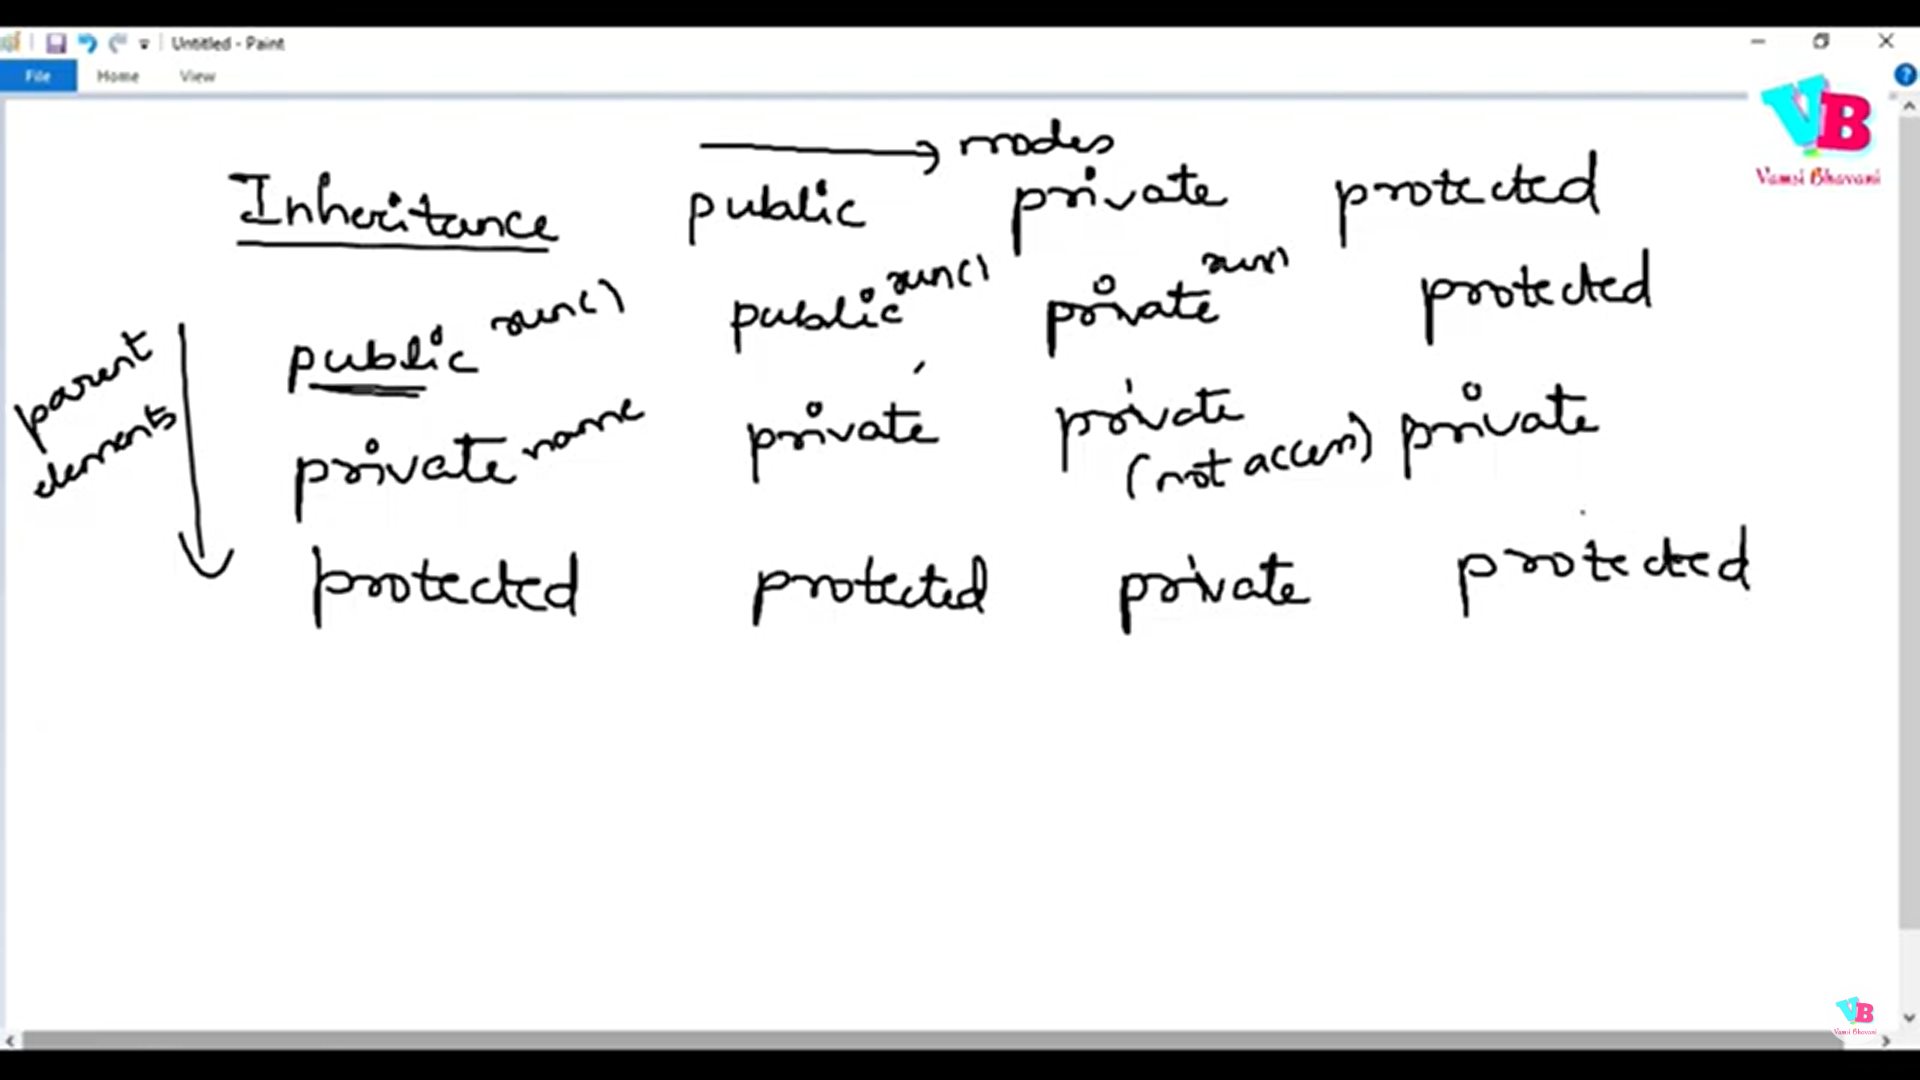 Untitled - Paint
File Home View
VB
Vamsi Bhavani
modes
Inheritance public private protected
public run() public run() private run) protected
parent elements
private name private private (not access) private
protected protected private protected
VB
Vamsi Bhavani